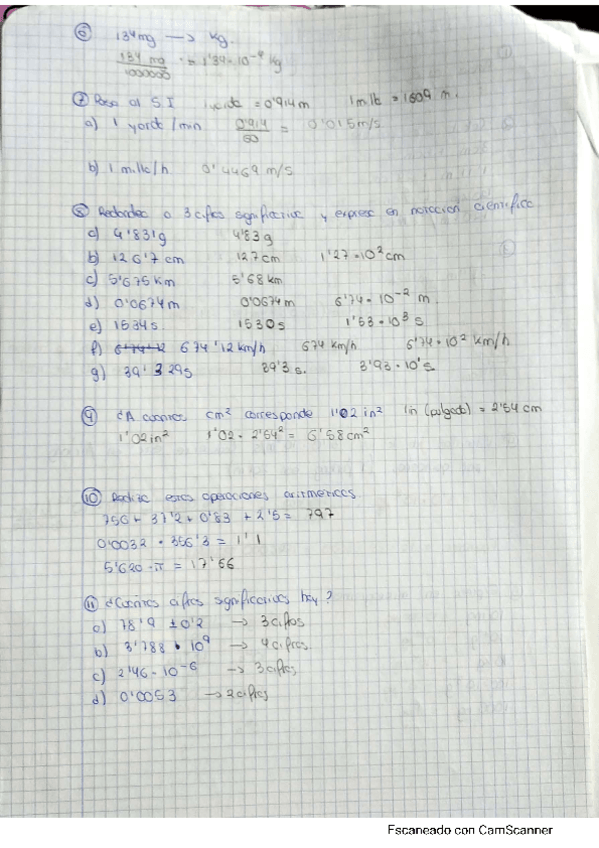 ⑥ 134mg → kg.
134 mg / 1000000 = 1'34·10⁻⁴ kg
⑦ Pasa al S.I 1 yarda = 0'914m 1 milla = 1609 m.
a) 1 yarda/min 0'914/60 = 0'015m/s
b) 1 milla/h 0'4469 m/s
⑧ Redondea a 3 cifras significativas y expresa en notación científica
a) 4'831g 4'83g
b) 126'7 cm 127cm 1'27·10² cm
c) 5'675 km 5'68 km
d) 0'0674m 0'0674m 6'74·10⁻² m.
e) 1534s 1530s 1'53·10³ s
f) 674'12 km/h 674 km/h 6'74·10² km/h
g) 39'329s 39'3s. 3'93·10's
⑨ ¿A cuántos cm² corresponde 1'02 in² 1in (pulgada) = 2'54 cm
1'02in² 1'02·2'54² = 6'58cm²
⑩ Realiza estas operaciones aritméticas
756+ 37'2 + 0'83 + 2'5 = 797
0'0032 · 356'3 = 1'1
5'620·π = 17'66
⑪ ¿Cuántas cifras significativas hay?
a) 78'9 ±0'2 → 3 cifras
b) 3'788 · 10⁹ → 4 cifras
c) 2'46·10⁻⁶ → 3 cifras
d) 0'0053 → 2 cifras
Escaneado con CamScanner